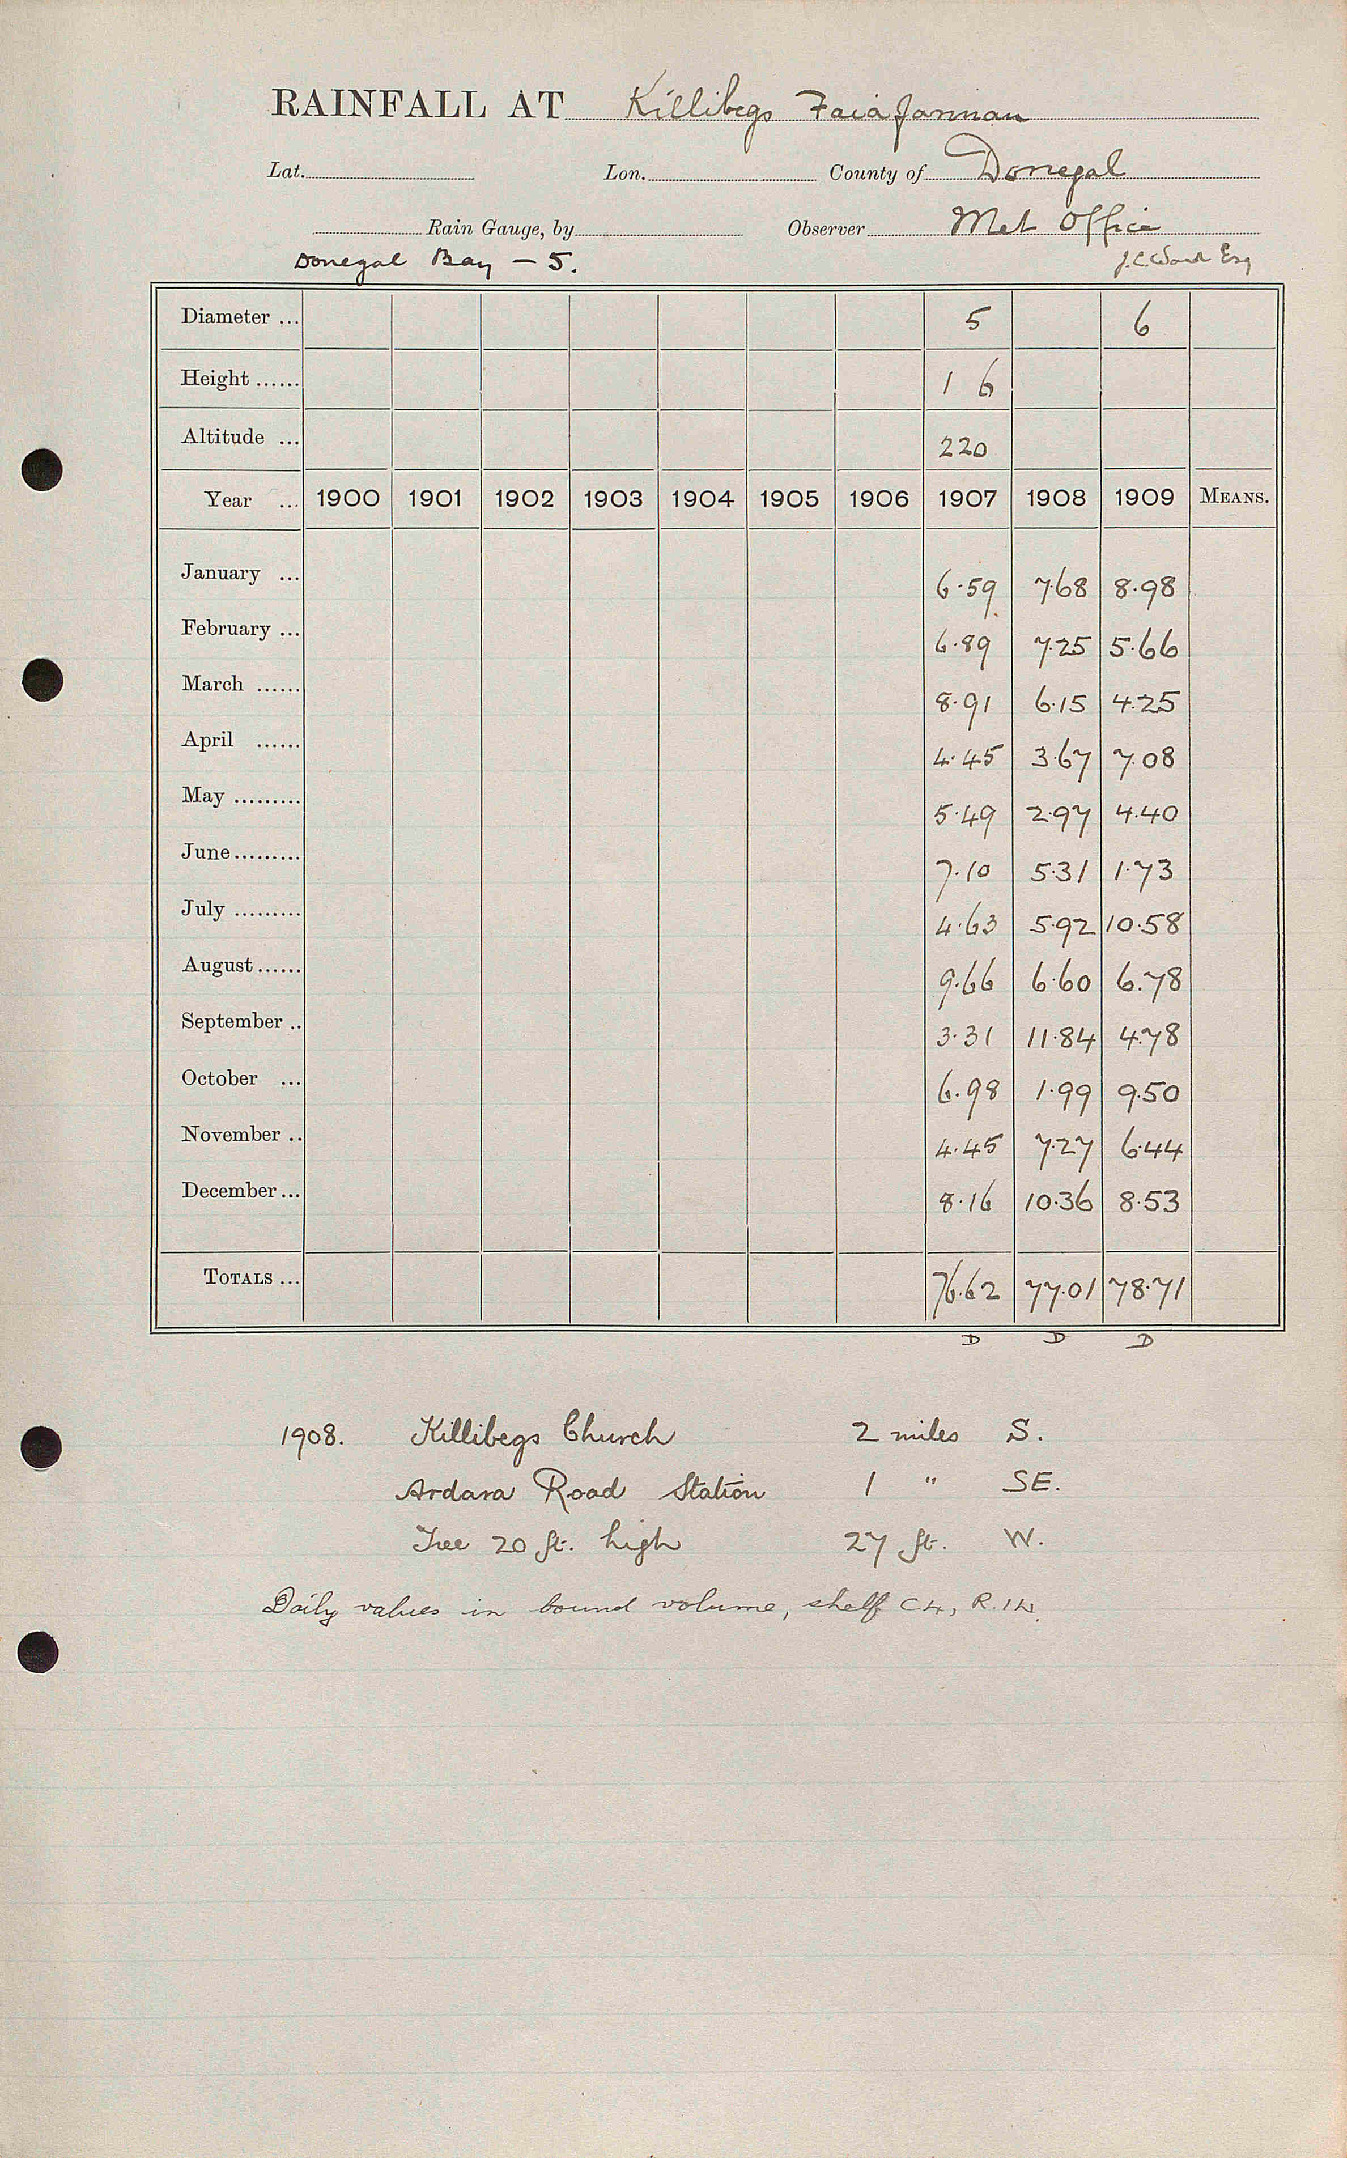 RAINFALL AT Killibegs Faiafannan
Lat. Lon. County of Donegal
Rain Gauge, by Observer Met Office
Donegal Bay - 5. J.C. Ward Esq
Diameter ... 5 6
Height ...... 1 6
Altitude ... 220
Year ... 1900 1901 1902 1903 1904 1905 1906 1907 1908 1909 MEANS.
January ... 6.59 7.68 8.98
February ... 6.89 7.25 5.66
March ...... 8.91 6.15 4.25
April ...... 4.45 3.67 7.08
May ......... 5.49 2.97 4.40
June ......... 7.10 5.31 1.73
July ......... 4.63 5.92 10.58
August ...... 9.66 6.60 6.78
September .. 3.31 11.84 4.78
October ... 6.98 1.99 9.50
November .. 4.45 7.27 6.44
December ... 8.16 10.36 8.53
TOTALS ... 76.62 77.01 78.71
D D D
1908. Killibegs Church 2 miles S.
Ardara Road Station 1 " SE.
Tree 20 ft. high 27 ft. W.
Daily values in bound volume, shelf C4, R.14.